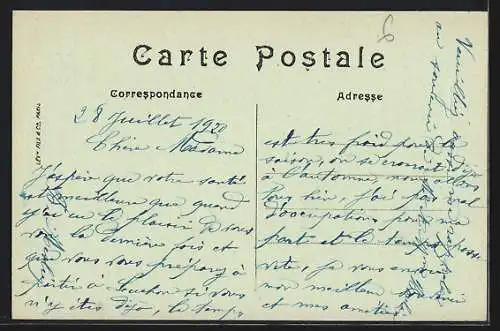 Carte Postale
Correspondance
Adresse
28 Juillet 1920
Chère Madame
J'espère que votre santé
est meilleure que quand
j'ai eu le plaisir de vous
voir la dernière fois et
que vous vous préparez à
partir à Luchon si vous
n'y êtes déjà, le temps
est très froid pour la
saison, on se croirait
à l'automne, nous allons
tous bien, j'ai pas mal
d'occupations pour ma
part et le temps passe
vite, je vous envoie
mon meilleur souvenir
et mes amitiés
Veuillez
au
LEVY FILS & Co, PARIS